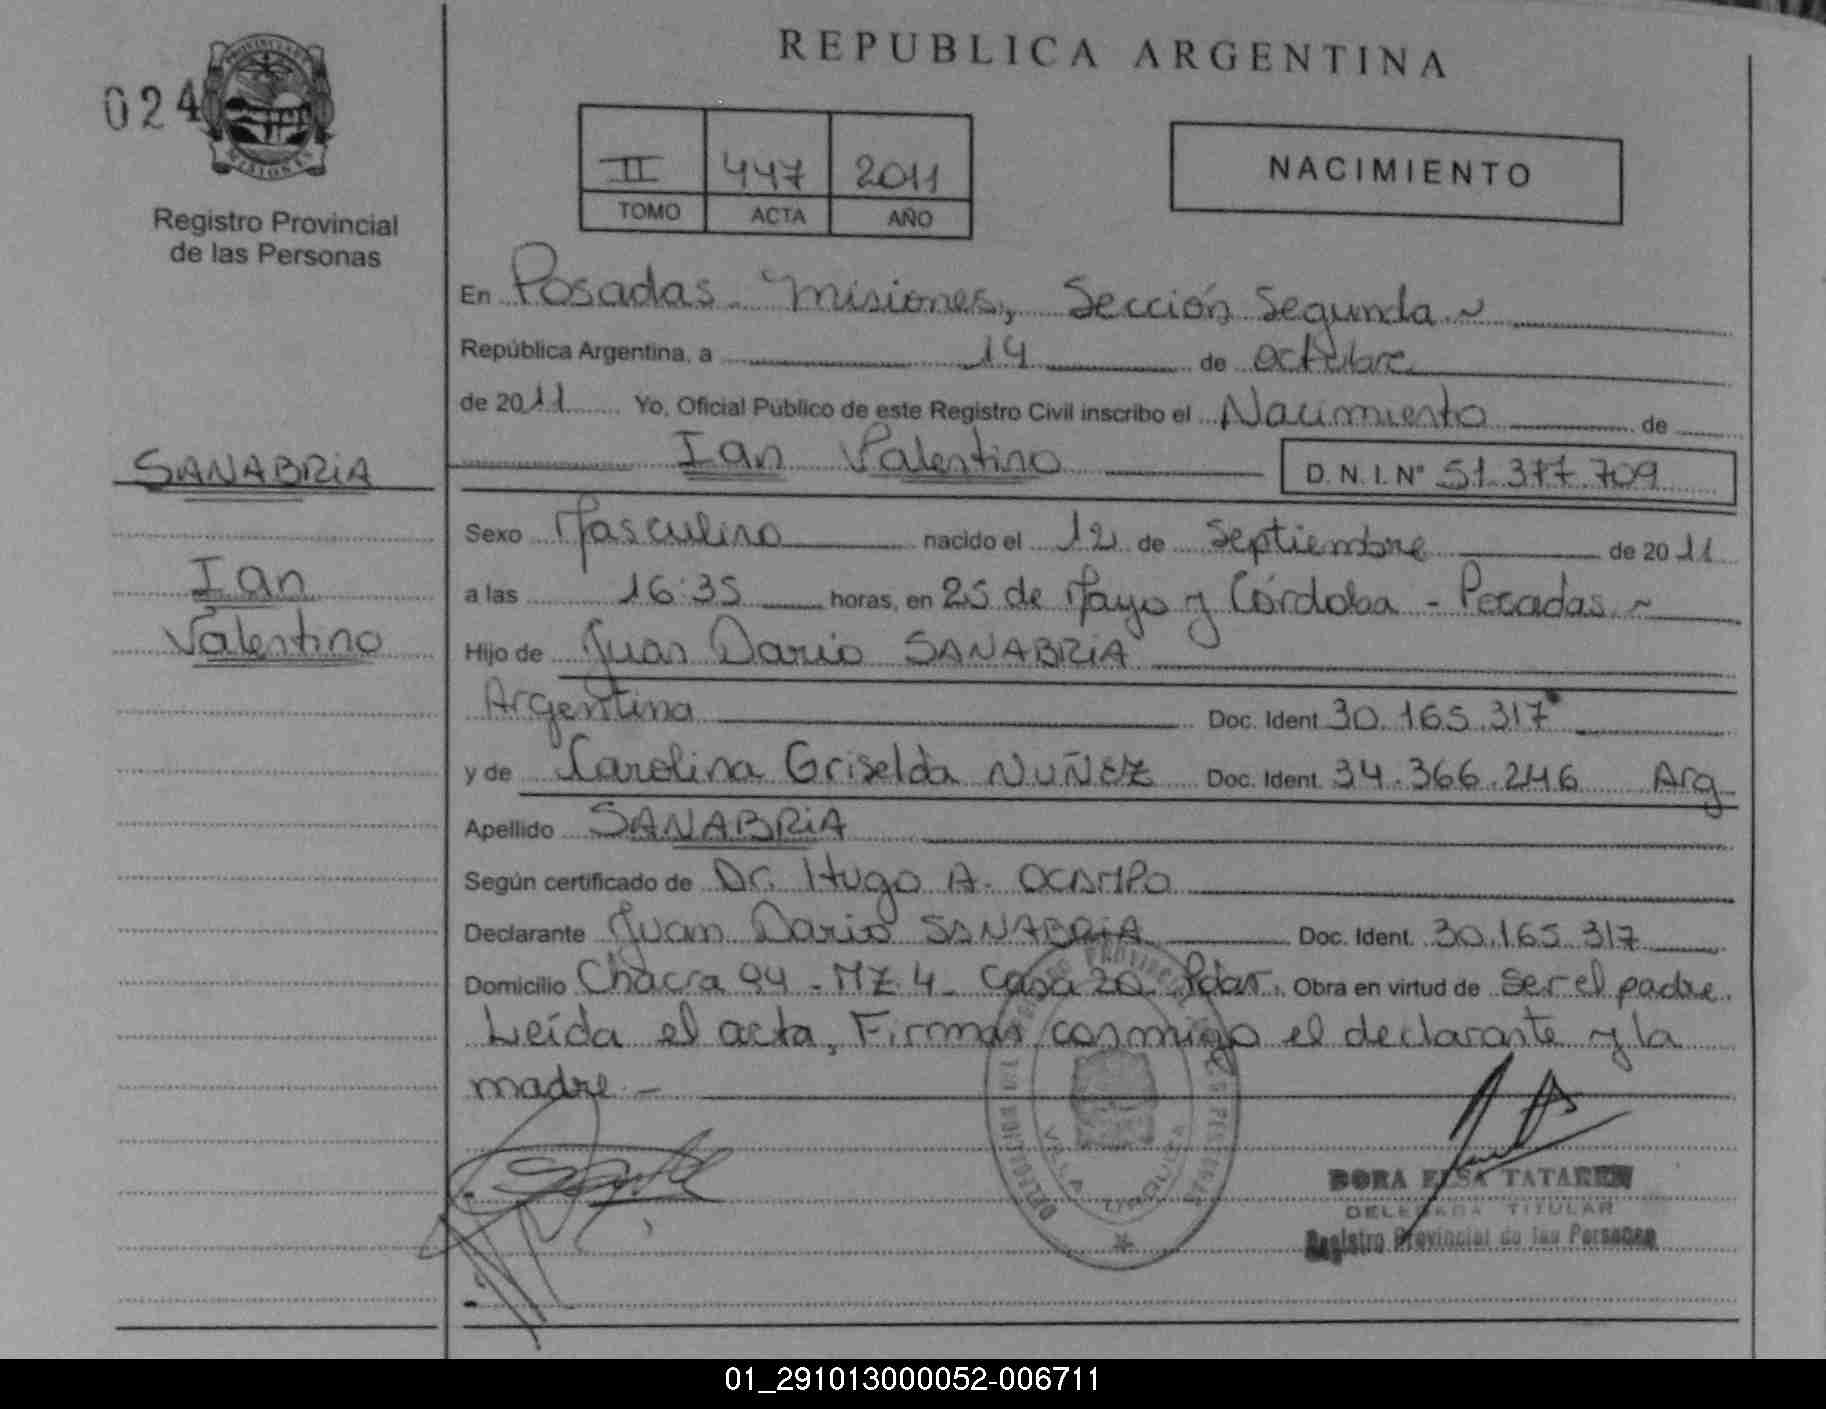 024
MISIONES
Registro Provincial
de las Personas
SANABRIA
Ian
Valentino
REPUBLICA ARGENTINA
II 447 2011
TOMO ACTA AÑO
NACIMIENTO
En Posadas Misiones, Sección Segunda
República Argentina, a 14 de octubre
de 2011 Yo, Oficial Público de este Registro Civil inscribo el Nacimiento de
Ian Valentino D.N.I.Nº 51.377.709
Sexo Masculino nacido el 12 de Septiembre de 2011
a las 16:35 horas, en 25 de Mayo y Córdoba - Posadas
Hijo de Juan Dario SANABRIA
Argentina Doc. Ident 30.165.317
y de Carolina Griselda NUÑEZ Doc. Ident. 34.366.246 Arg
Apellido SANABRIA
Según certificado de Dr. Hugo A. OCAMPO
Declarante Juan Dario SANABRIA Doc. Ident. 30.165.317
Domicilio Chacra 94 - MZ 4 - Casa 20 Pdas. Obra en virtud de ser el padre.
Leída el acta, Firman conmigo el declarante y la
madre -
DORA ELSA TATAREN
DELEGADA TITULAR
Registro Provincial de las Personas
01_291013000052-006711